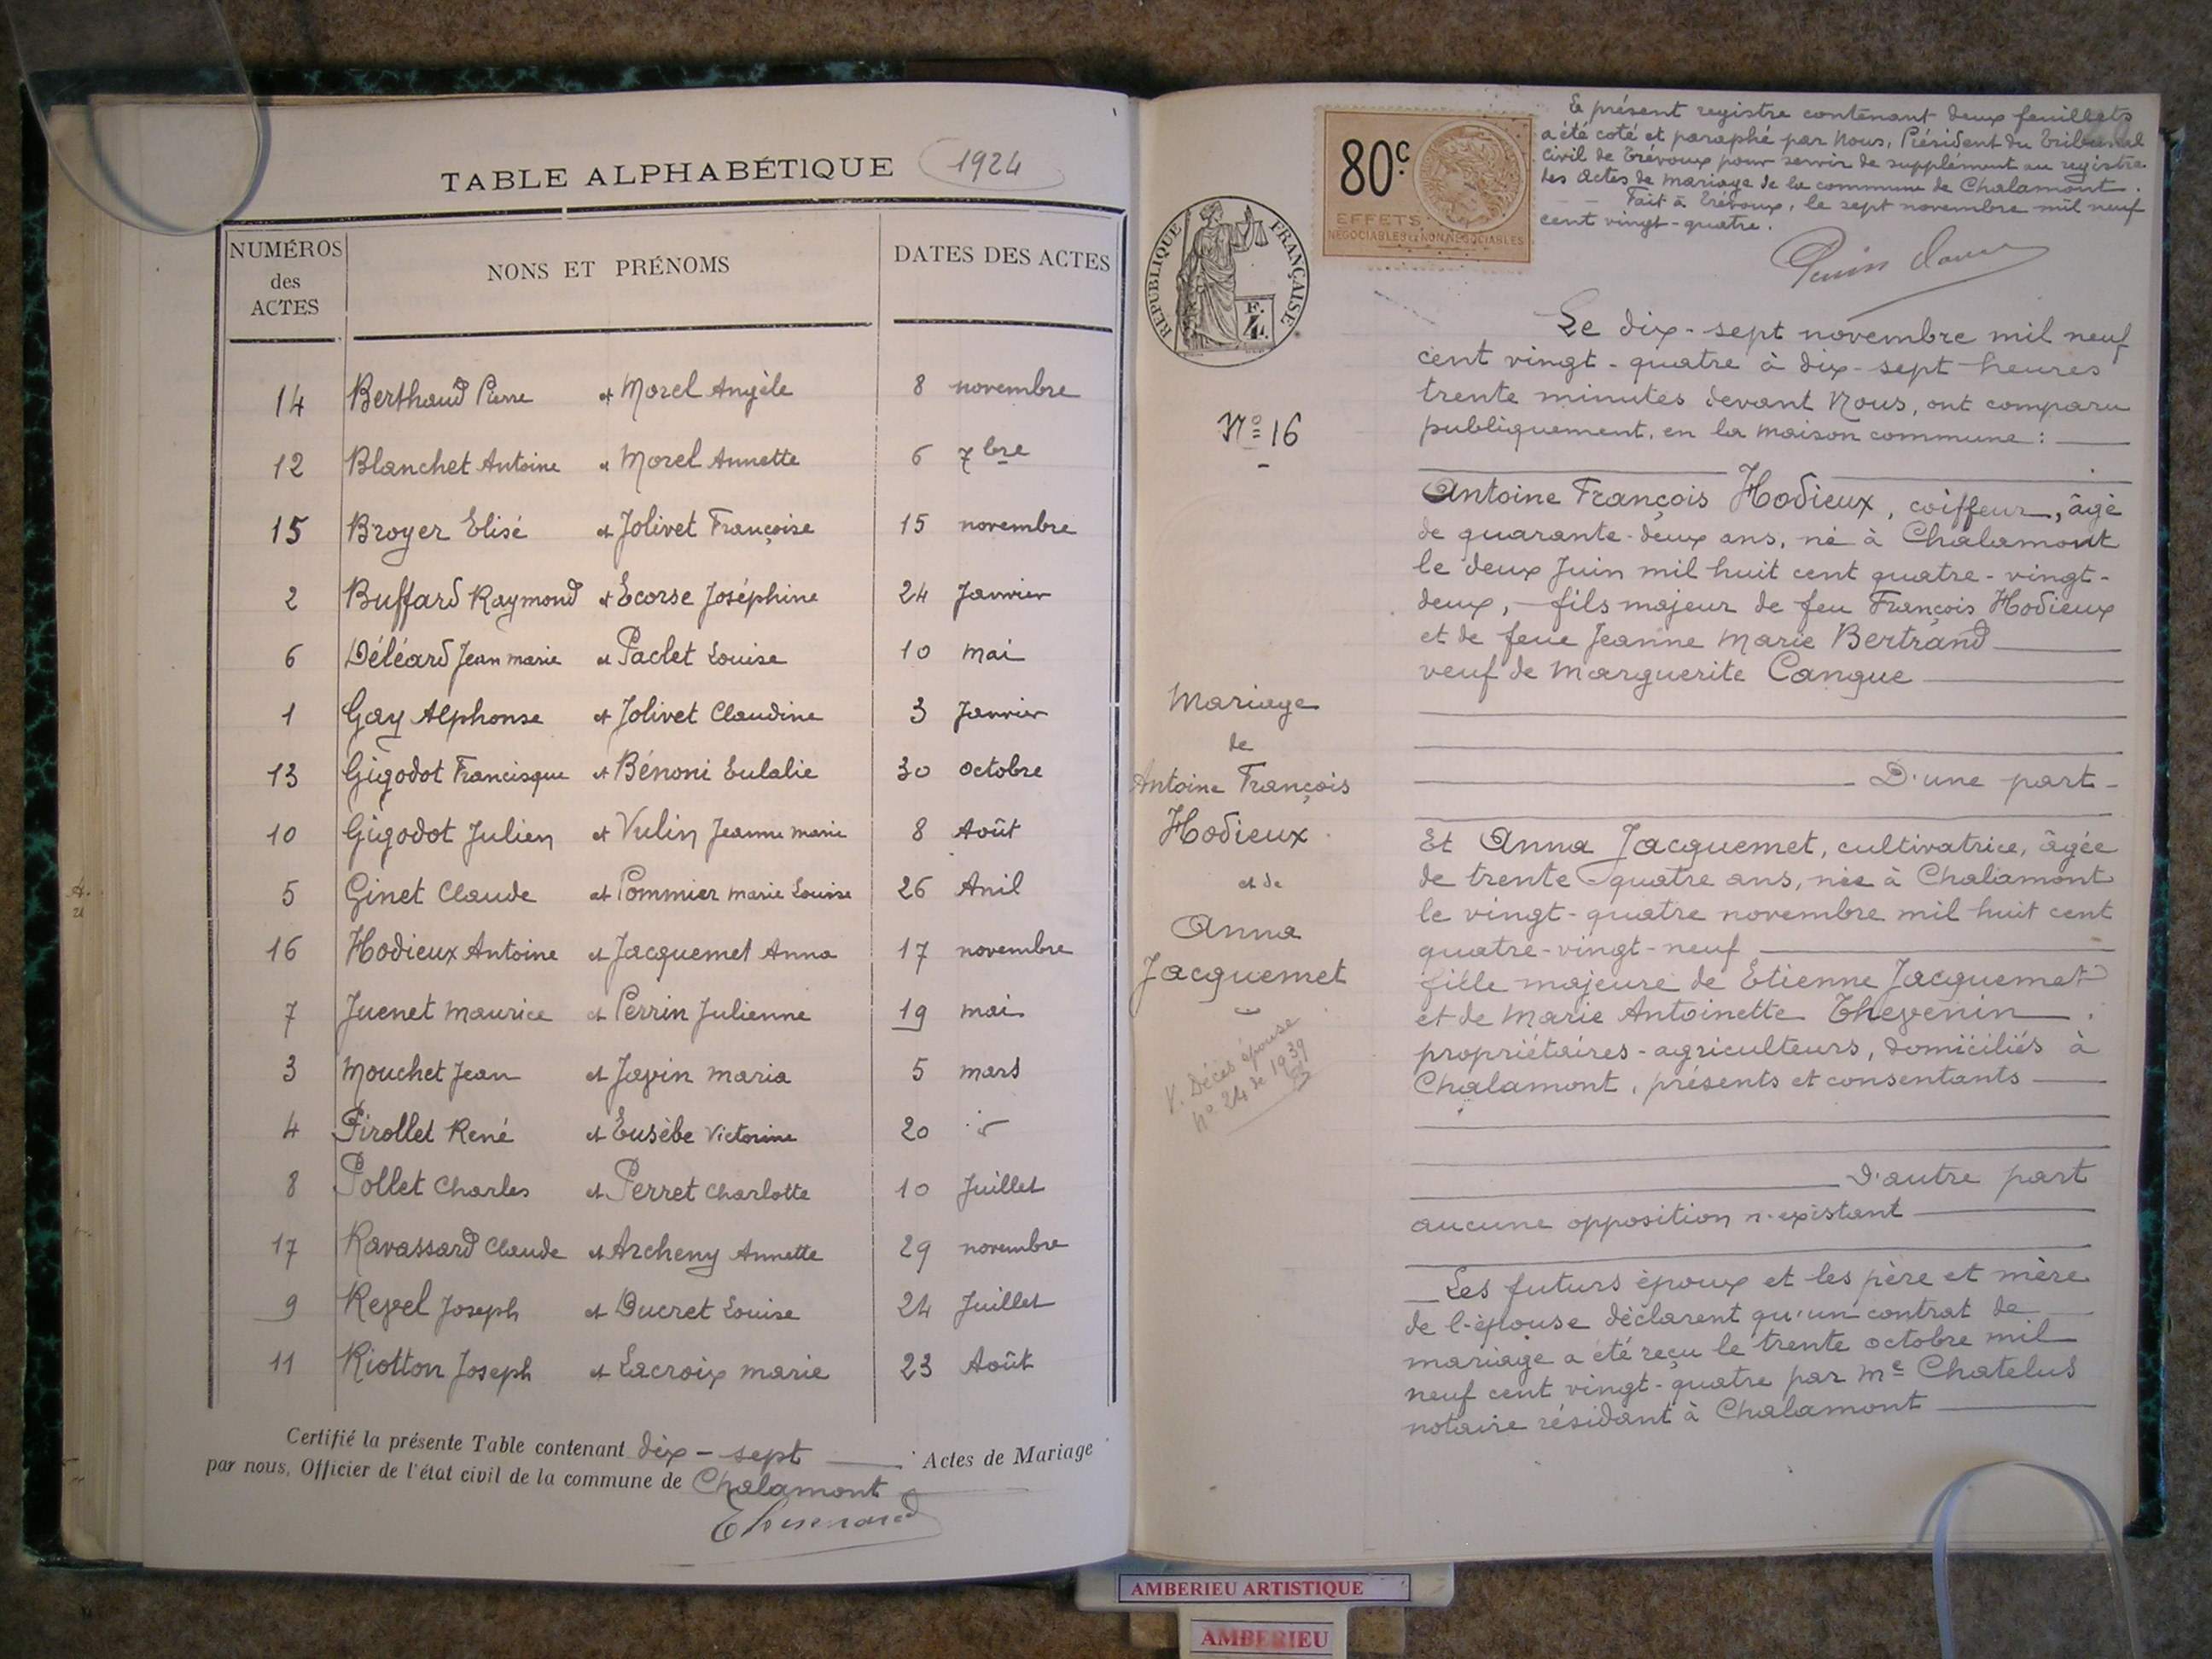 TABLE ALPHABÉTIQUE 1924
NUMÉROS des ACTES
NONS ET PRÉNOMS
DATES DES ACTES
14 Berthaud Pierre et Morel Angèle 8 novembre
12 Blanchet Antoine et Morel Annette 6 7bre
15 Broyer Elisé et Jolivet Françoise 15 novembre
2 Buffard Raymond et Ecorse Joséphine 24 Janvier
6 Déléard Jean marie et Paclet Louise 10 mai
1 Gay Alphonse et Jolivet Claudine 3 Janvier
13 Gigodot Francisque et Bénoni Eulalie 30 octobre
10 Gigodot Julien et Vulin Jeanne marie 8 Août
5 Ginet Claude et Pommier marie Louise 26 Avril
16 Hodieux Antoine et Jacquemet Anna 17 novembre
7 Juenet maurice et Perrin Julienne 19 mai
3 Mouchet Jean et Javin maria 5 mars
4 Pirollet René et Eusèbe Victorine 20
8 Pollet Charles et Perret Charlotte 10 Juillet
17 Ravassard Claude et Archeny Annette 29 novembre
9 Revel Joseph et Ducret Louise 24 Juillet
11 Riotton Joseph et Lacroix marie 23 Août
Certifié la présente Table contenant dix-sept Actes de Mariage
par nous, Officier de l'état civil de la commune de Chalamont
RÉPUBLIQUE FRANÇAISE
F. 4.
80c
EFFETS
NÉGOCIABLES et NON NÉGOCIABLES
Le présent registre contenant deux feuillets
a été coté et paraphé par Nous, Président du Tribunal
Civil de Trévoux pour servir de supplément au registre
des actes de mariage de la commune de Chalamont.
Fait à Trévoux, le sept novembre mil neuf
cent vingt-quatre.
N° 16
Mariage
de
Antoine François
Hodieux
et de
Anna
Jacquemet
V. Décès épouse
n° 24 de 1939
Le dix-sept novembre mil neuf
cent vingt-quatre à dix-sept heures
trente minutes devant Nous, ont comparu
publiquement, en la maison commune :
Antoine François Hodieux, coiffeur, âgé
de quarante-deux ans, né à Chalamont
le deux Juin mil huit cent quatre-vingt-
deux, fils majeur de feu François Hodieux
et de feue Jeanne Marie Bertrand
veuf de Marguerite Cangue
D'une part
Et Anna Jacquemet, cultivatrice, âgée
de trente quatre ans, née à Chalamont
le vingt-quatre novembre mil huit cent
quatre-vingt-neuf
fille majeure de Etienne Jacquemet
et de Marie Antoinette Thevenin.
propriétaires-agriculteurs, domiciliés à
Chalamont, présents et consentants
D'autre part
aucune opposition n'existant
Les futurs époux et les père et mère
de l'épouse déclarent qu'un contrat de
mariage a été reçu le trente octobre mil
neuf cent vingt-quatre par Me Chatelus
notaire résidant à Chalamont
AMBERIEU ARTISTIQUE
AMBERIEU